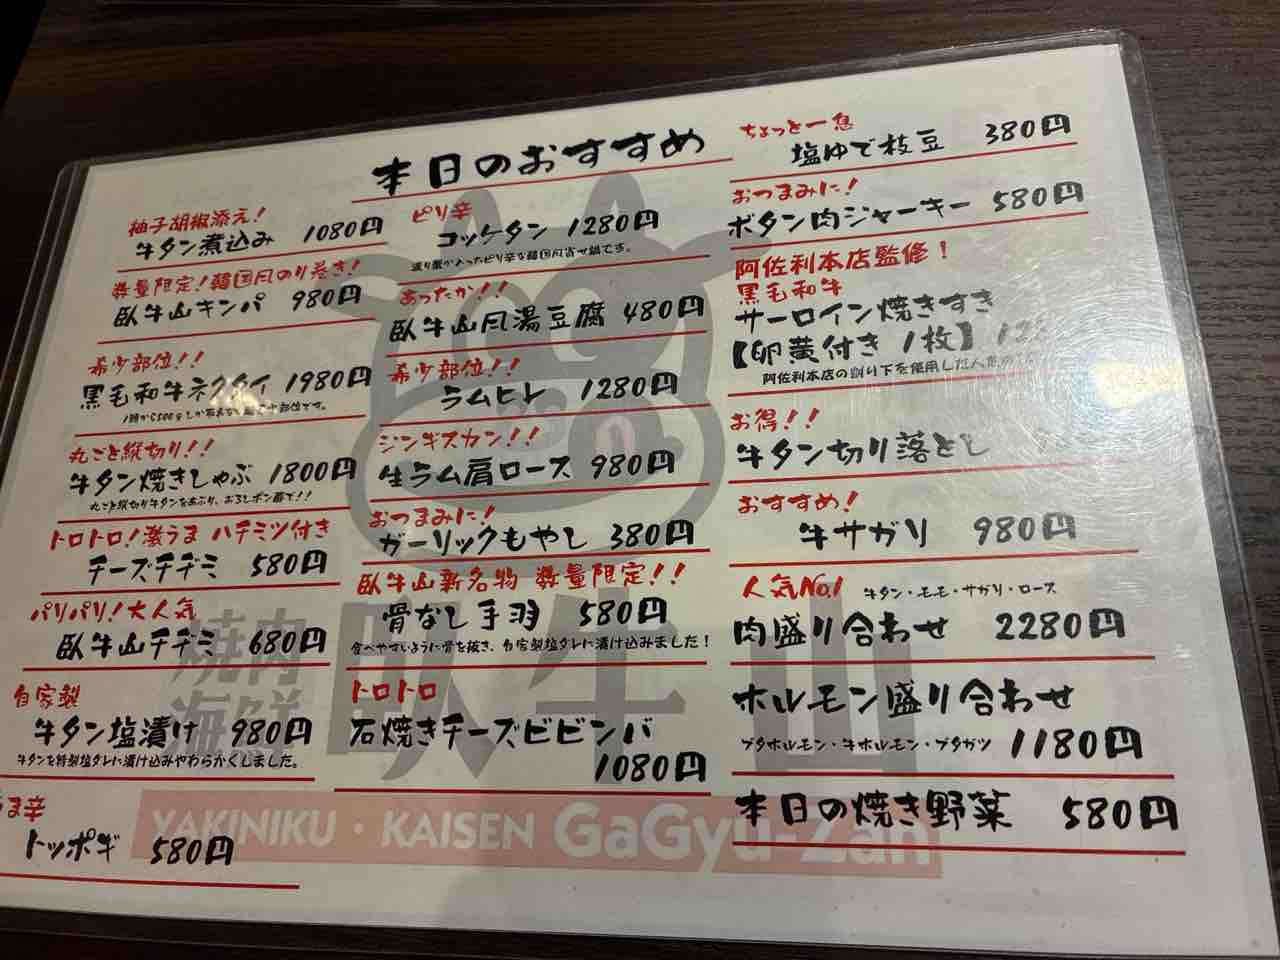 本日のおすすめ
柚子胡椒添え!
牛タン煮込み 1080円
数量限定!韓国風のり巻き!
臥牛山キンパ 980円
希少部位!!
黒毛和牛ネクタイ 1980円
丸ごと縦切り!!
牛タン焼きしゃぶ 1800円
丸ごと縦切り牛タンをあぶり、おろしポン酢で!!
トロトロ!激うま ハチミツ付き
チーズチヂミ 580円
パリパリ!大人気
臥牛山チヂミ 680円
自家製
牛タン塩漬け 980円
牛タンを特製塩タレに漬け込みやわらかくしました。
うま辛
トッポギ 580円
ピリ辛
コッケタン 1280円
渡り蟹が入ったピリ辛な韓国風寄せ鍋です。
あったか!!
臥牛山風湯豆腐 480円
希少部位!!
ラムヒレ 1280円
ジンギスカン!!
生ラム肩ロース 980円
おつまみに!
ガーリックもやし 380円
臥牛山新名物 数量限定!!
骨なし手羽 580円
食べやすいように骨を抜き、自家製塩タレに漬け込みました!
トロトロ
石焼きチーズビビンバ
1080円
ちょっと一息
塩ゆで枝豆 380円
おつまみに!
ボタン肉ジャーキー 580円
阿佐利本店監修!
黒毛和牛
サーロイン焼きすき
【卵黄付き 1枚】
阿佐利本店の割り下を使用した人気の
お得!!
牛タン切り落とし
おすすめ!
牛サガリ 980円
人気No.1 牛タン・モモ・サガリ・ロース
肉盛り合わせ 2280円
ホルモン盛り合わせ
ブタホルモン・牛ホルモン・ブタガツ 1180円
本日の焼き野菜 580円
焼肉
海鮮
臥牛山
YAKINIKU・KAISEN GaGyu-Zan